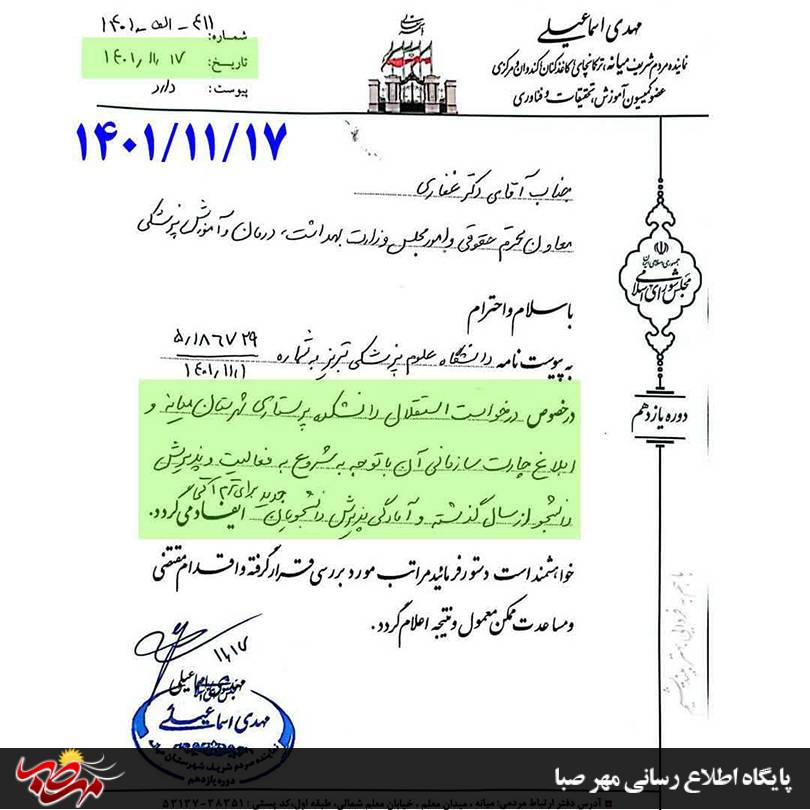 مهدی اسماعیلی
نماینده مردم شریف میانه، ترکمانچای کاغذکنان کندوان و مرکزی
عضو کمیسیون آموزش، تحقیقات و فناوری
شماره: ۴۱۱ - الف - ۱۴۰۱
تاریخ: ۱۴۰۱/۱۱/۱۷
پیوست: دارد
۱۴۰۱/۱۱/۱۷
جناب آقای دکتر غفاری
معاون محترم حقوقی و امور مجلس وزارت بهداشت، درمان و آموزش پزشکی
با سلام و احترام
به پیوست نامه دانشگاه علوم پزشکی تبریز به شماره ۵/۱۸۶۷۲۹
۱۴۰۱/۱۱/۱
در خصوص درخواست استقلال دانشکده پرستاری شهرستان میانه و
ابلاغ چارت سازمانی آن با توجه به شروع به فعالیت و پذیرش
دانشجو از سال گذشته و آمادگی پذیرش دانشجویان جدید برای ترم آتی ایفاد می گردد.
خواهشمند است دستور فرمائید مراتب مورد بررسی قرار گرفته و اقدام مقتضی
و مساعدت ممکن معمول و نتیجه اعلام گردد.
جمهوری اسلامی ایران
مجلس شورای اسلامی
دوره یازدهم
۱۱/۱۷
مهدی اسماعیلی
نماینده مردم شریف شهرستان میانه
دوره یازدهم
آدرس دفتر ارتباط مردمی: میانه ، میدان معلم ، خیابان معلم شمالی، طبقه اول، کد پستی :
مهر صبا
پایگاه اطلاع رسانی مهر صبا